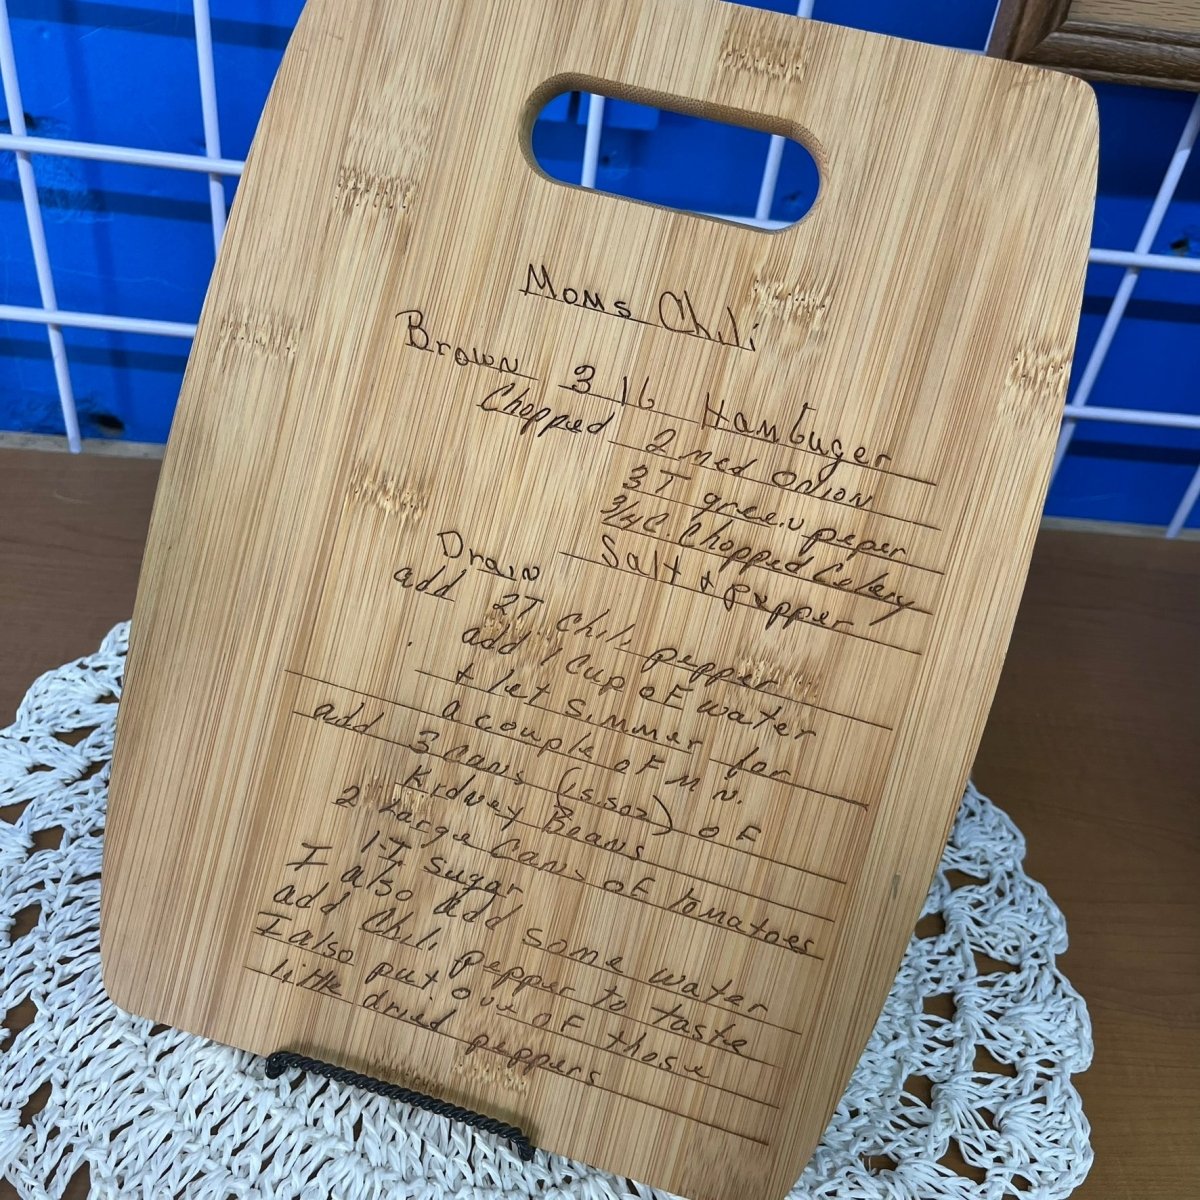 Moms Chili
Brown 3 lb Hambuger
Chopped 2 med onion
3 T green peper
3/4 C. Chopped Celery
Salt + pepper
Drain
add 2T Chili pepper
add 1 cup of water
+ let simmer for
a couple of MiN.
add 3 cans (15.5oz) of
Kidney Beans
2 Large Cans of tomatoes
1-T sugar
I also add some water
add Chili pepper to taste
I also put out of those
little dried peppers